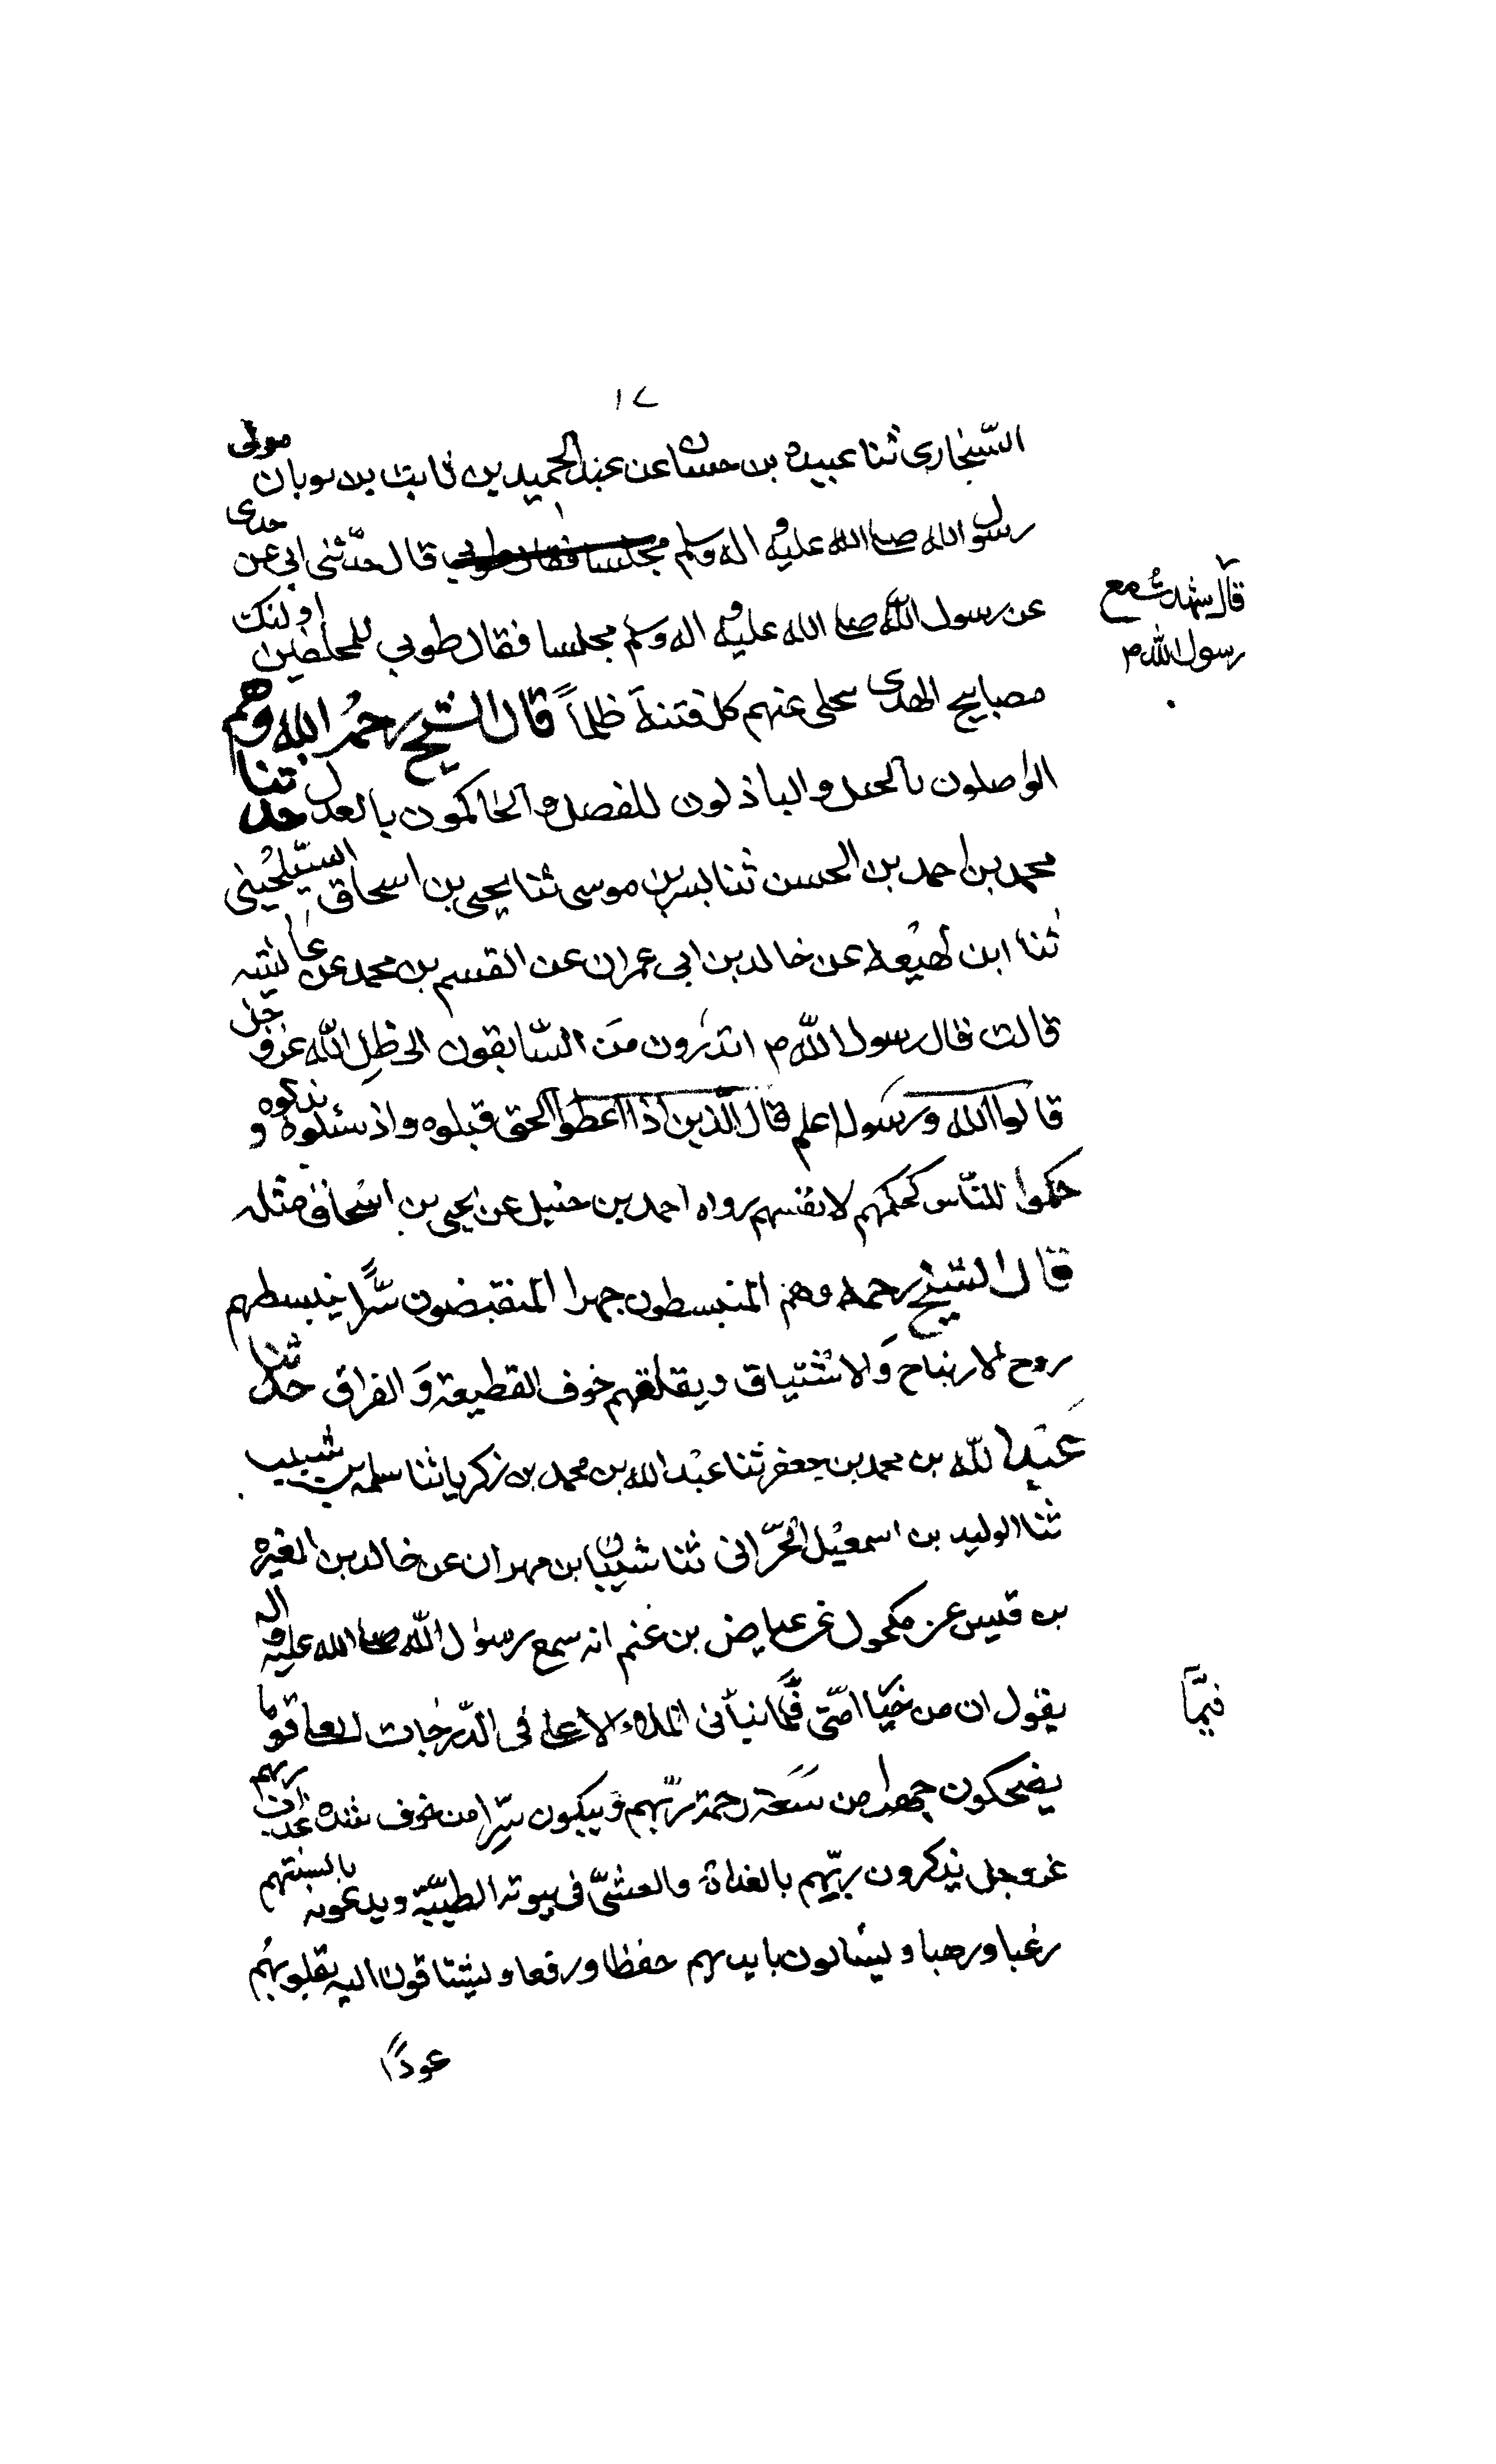 ١٧
السنجارى ثنا عبيدة بن حسان عن عبد الحميد بن ثابت بن ثوبان مولى
رسول الله صلى الله عليه واله وسلم مجلسا فقال طوبى قال حدثنى ابى عن جدى
قال شهدت مع
رسول الله م
عن رسول الله صلى الله عليه واله وسلم مجلسا فقال طوبى للمخلصين اولئك
مصابيح الهدى تجلى عنهم كل فتنة ظلماً قال الشيخ رحمه الله وهم
الواصلون بالحبل والباذلون للفضل والحاكمون بالعدل حدثنا
محمد بن احمد بن الحسن ثنا بشر بن موسى ثنا يحيى بن اسحاق السيلحينى
ثنا ابن لهيعة عن خالد بن ابى عمران عن القسم بن محمد عن عائشه
قالت قال رسول الله م اتدرون من السّابقون الى ظل الله عز وجل
قالوا الله ورسوله اعلم قال الذين اذا اعطوا الحق قبلوه واذ سئلوه بذلوه و
حكموا للناس كحكمهم لانفسهم رواه احمد بن حنبل عن يحيى بن اسحاق مثله
قال الشيخ رحمه وهم المنبسطون جهرا المنقبضون سرّاً يبسطهم
روح الارتياح وَالاشتياق ويقلقهم خوف القطيعة وَالفراق حدثنا
عَبْد الله بن محمد بن جعفر ثنا عبد الله بن محمد بن زكريا ثنا سلمه بن شبيب
ثنا الوليد بن اسمعيل الحرّانى ثنا شيبان بن مهران عن خالد بن المغيره
بن قيس عن مكحول عن عياض بن غنم انه سمع رسول الله صلى الله عليه واله
يقول ان من خيار امّتى فيما نبأنى الملاء الاعلى فى الدّرجات العلى قوما
فيمَّا
يضحكون جهرا من سَعَة رحمة ربّهم ويبكون سرّا من خوف شدة عذاب ربهم
عز وجل يذكرون ربّهم بالغداة والعشىّ فى بيوته الطيّبة ويدعونه بالسنتهم
رغبا ورهبا ويسالونه بايديهم خفظا ورفعا ويشتاقون اليه بقلوبهم
عوداً